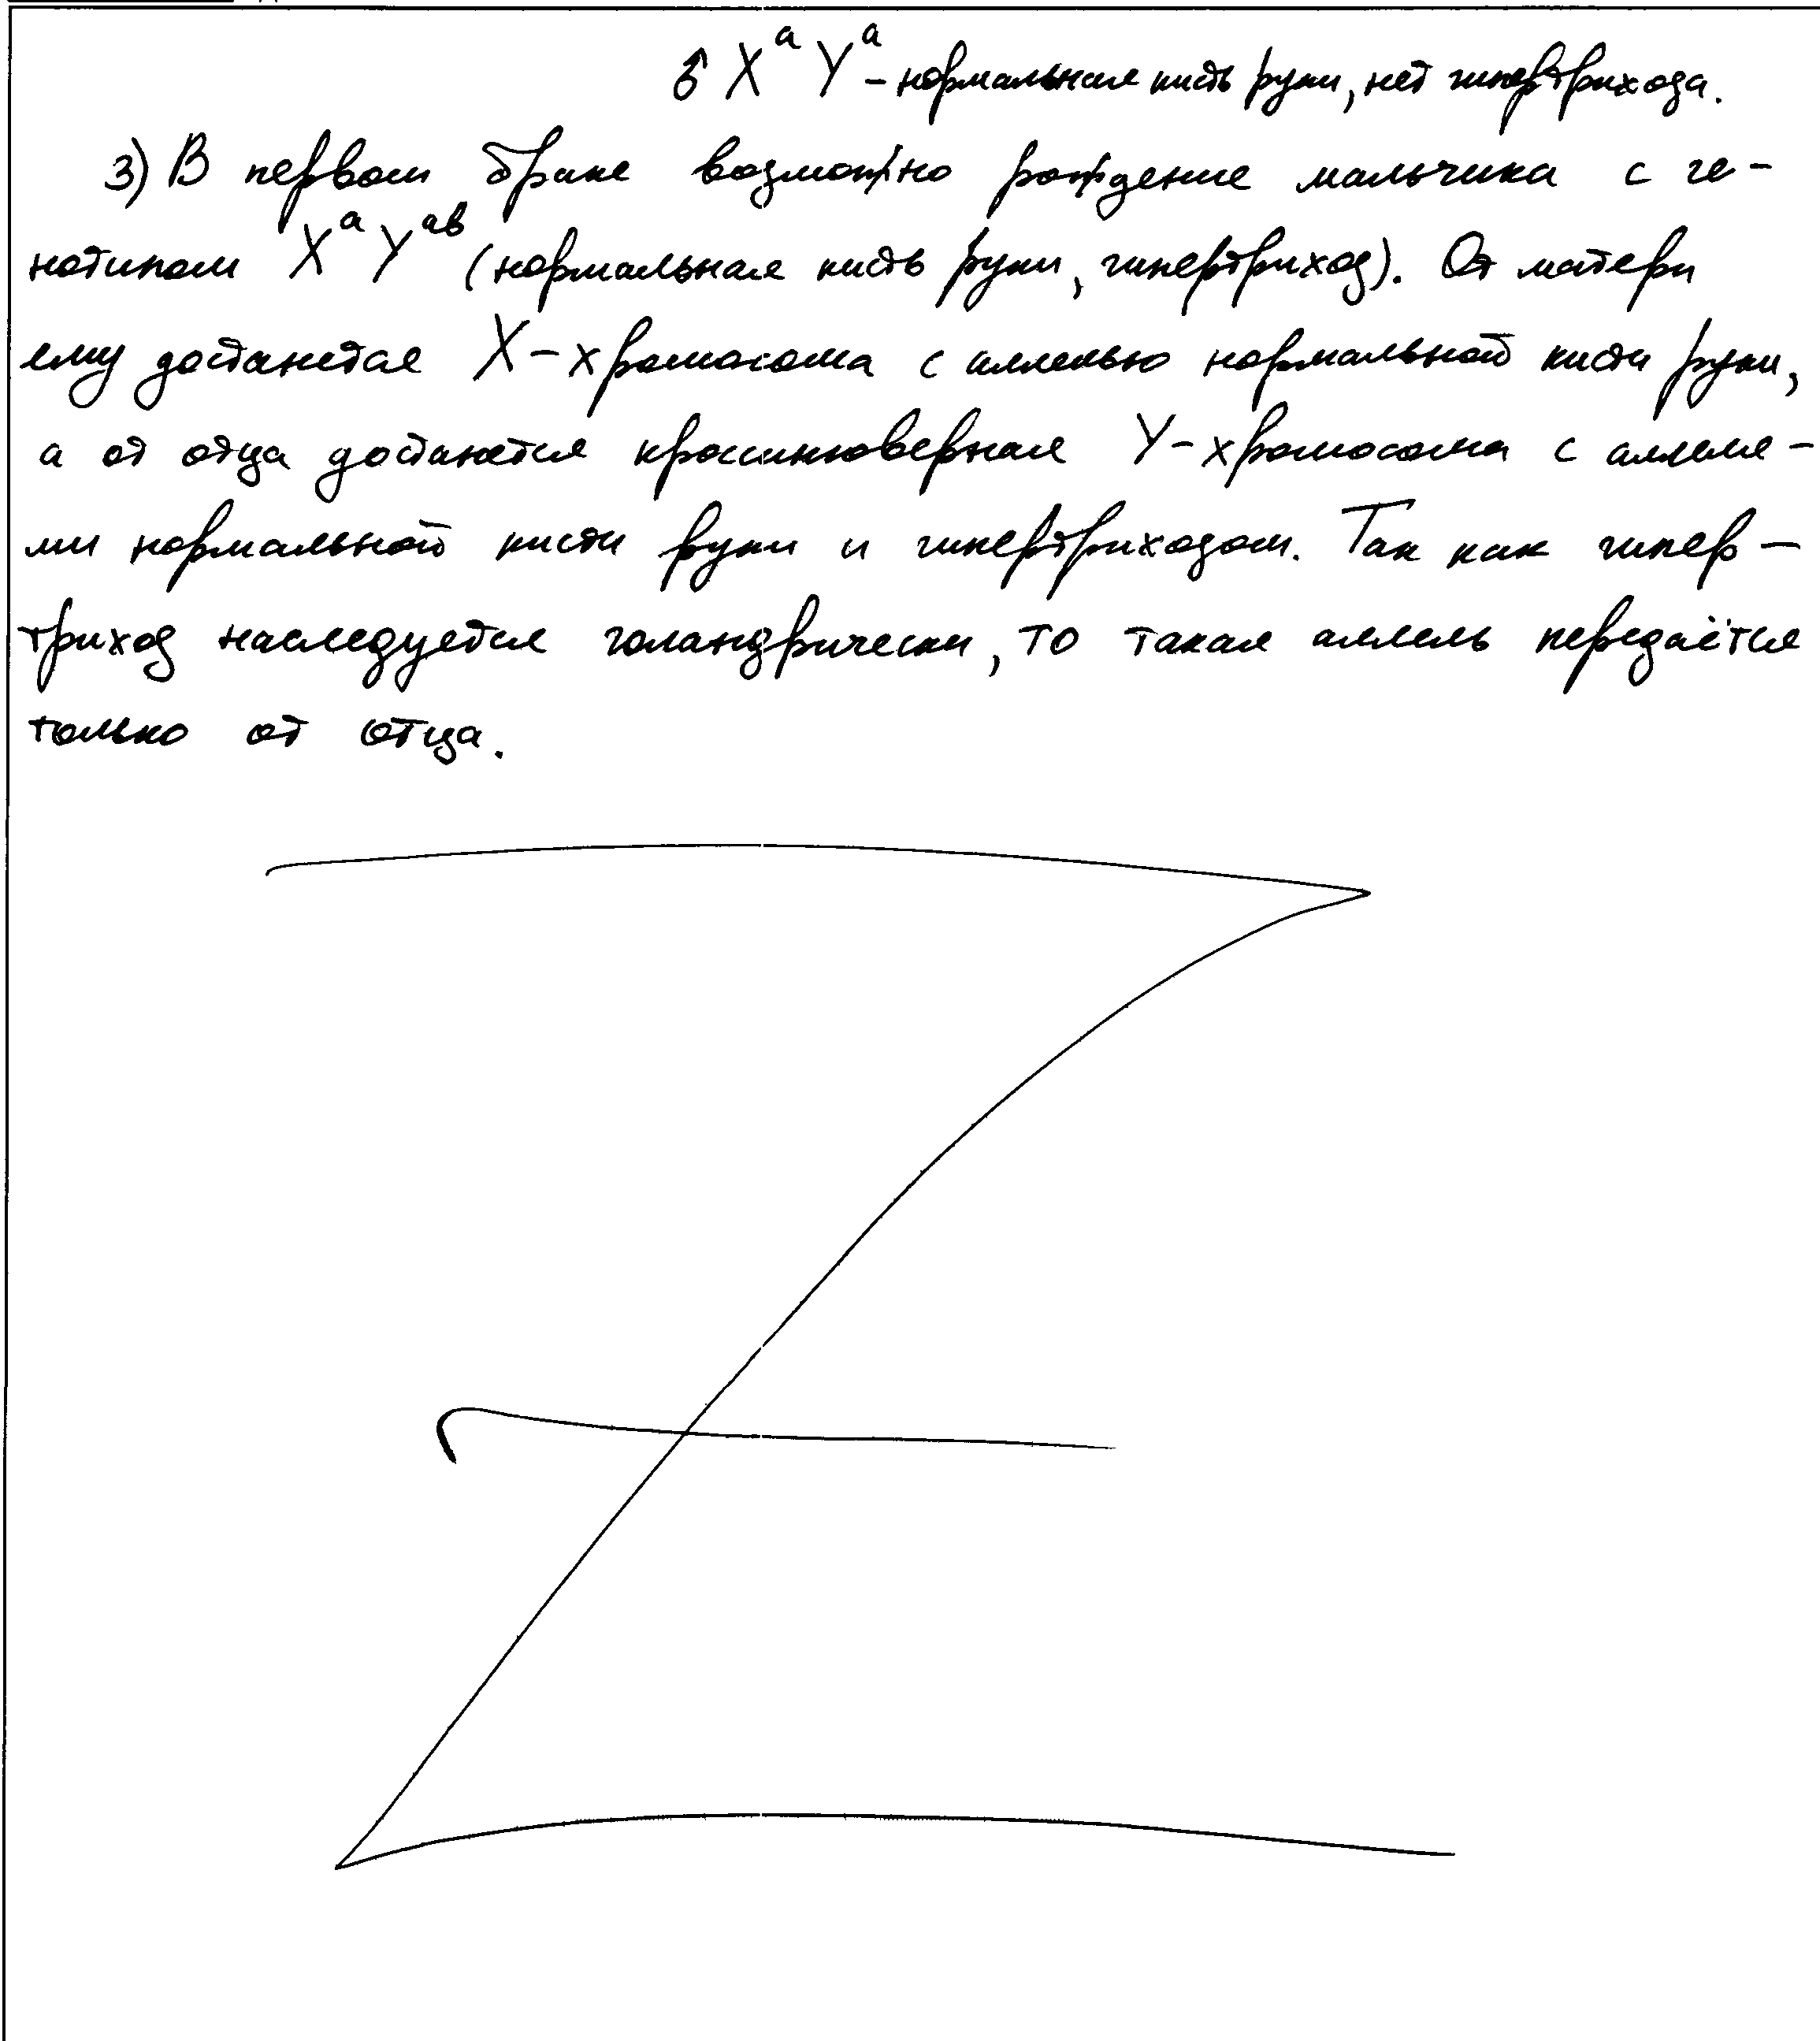 ♂ XᵃYᵃ – нормальная кисть руки, нет гипертрихоза.
3) В первом браке возможно рождение мальчика с ге-
нотипом XᵃYᵃᵇ (нормальная кисть руки, гипертриход). От матери
ему достанется X-хромосома с аллелью нормальной кисти руки,
а от отца достанется кроссинговерная Y-хромосома с аллеля-
ми нормальной кисти руки и гипертриходом. Так как гипер-
триход наследуется голандрически, то такая аллель передаётся
только от отца.